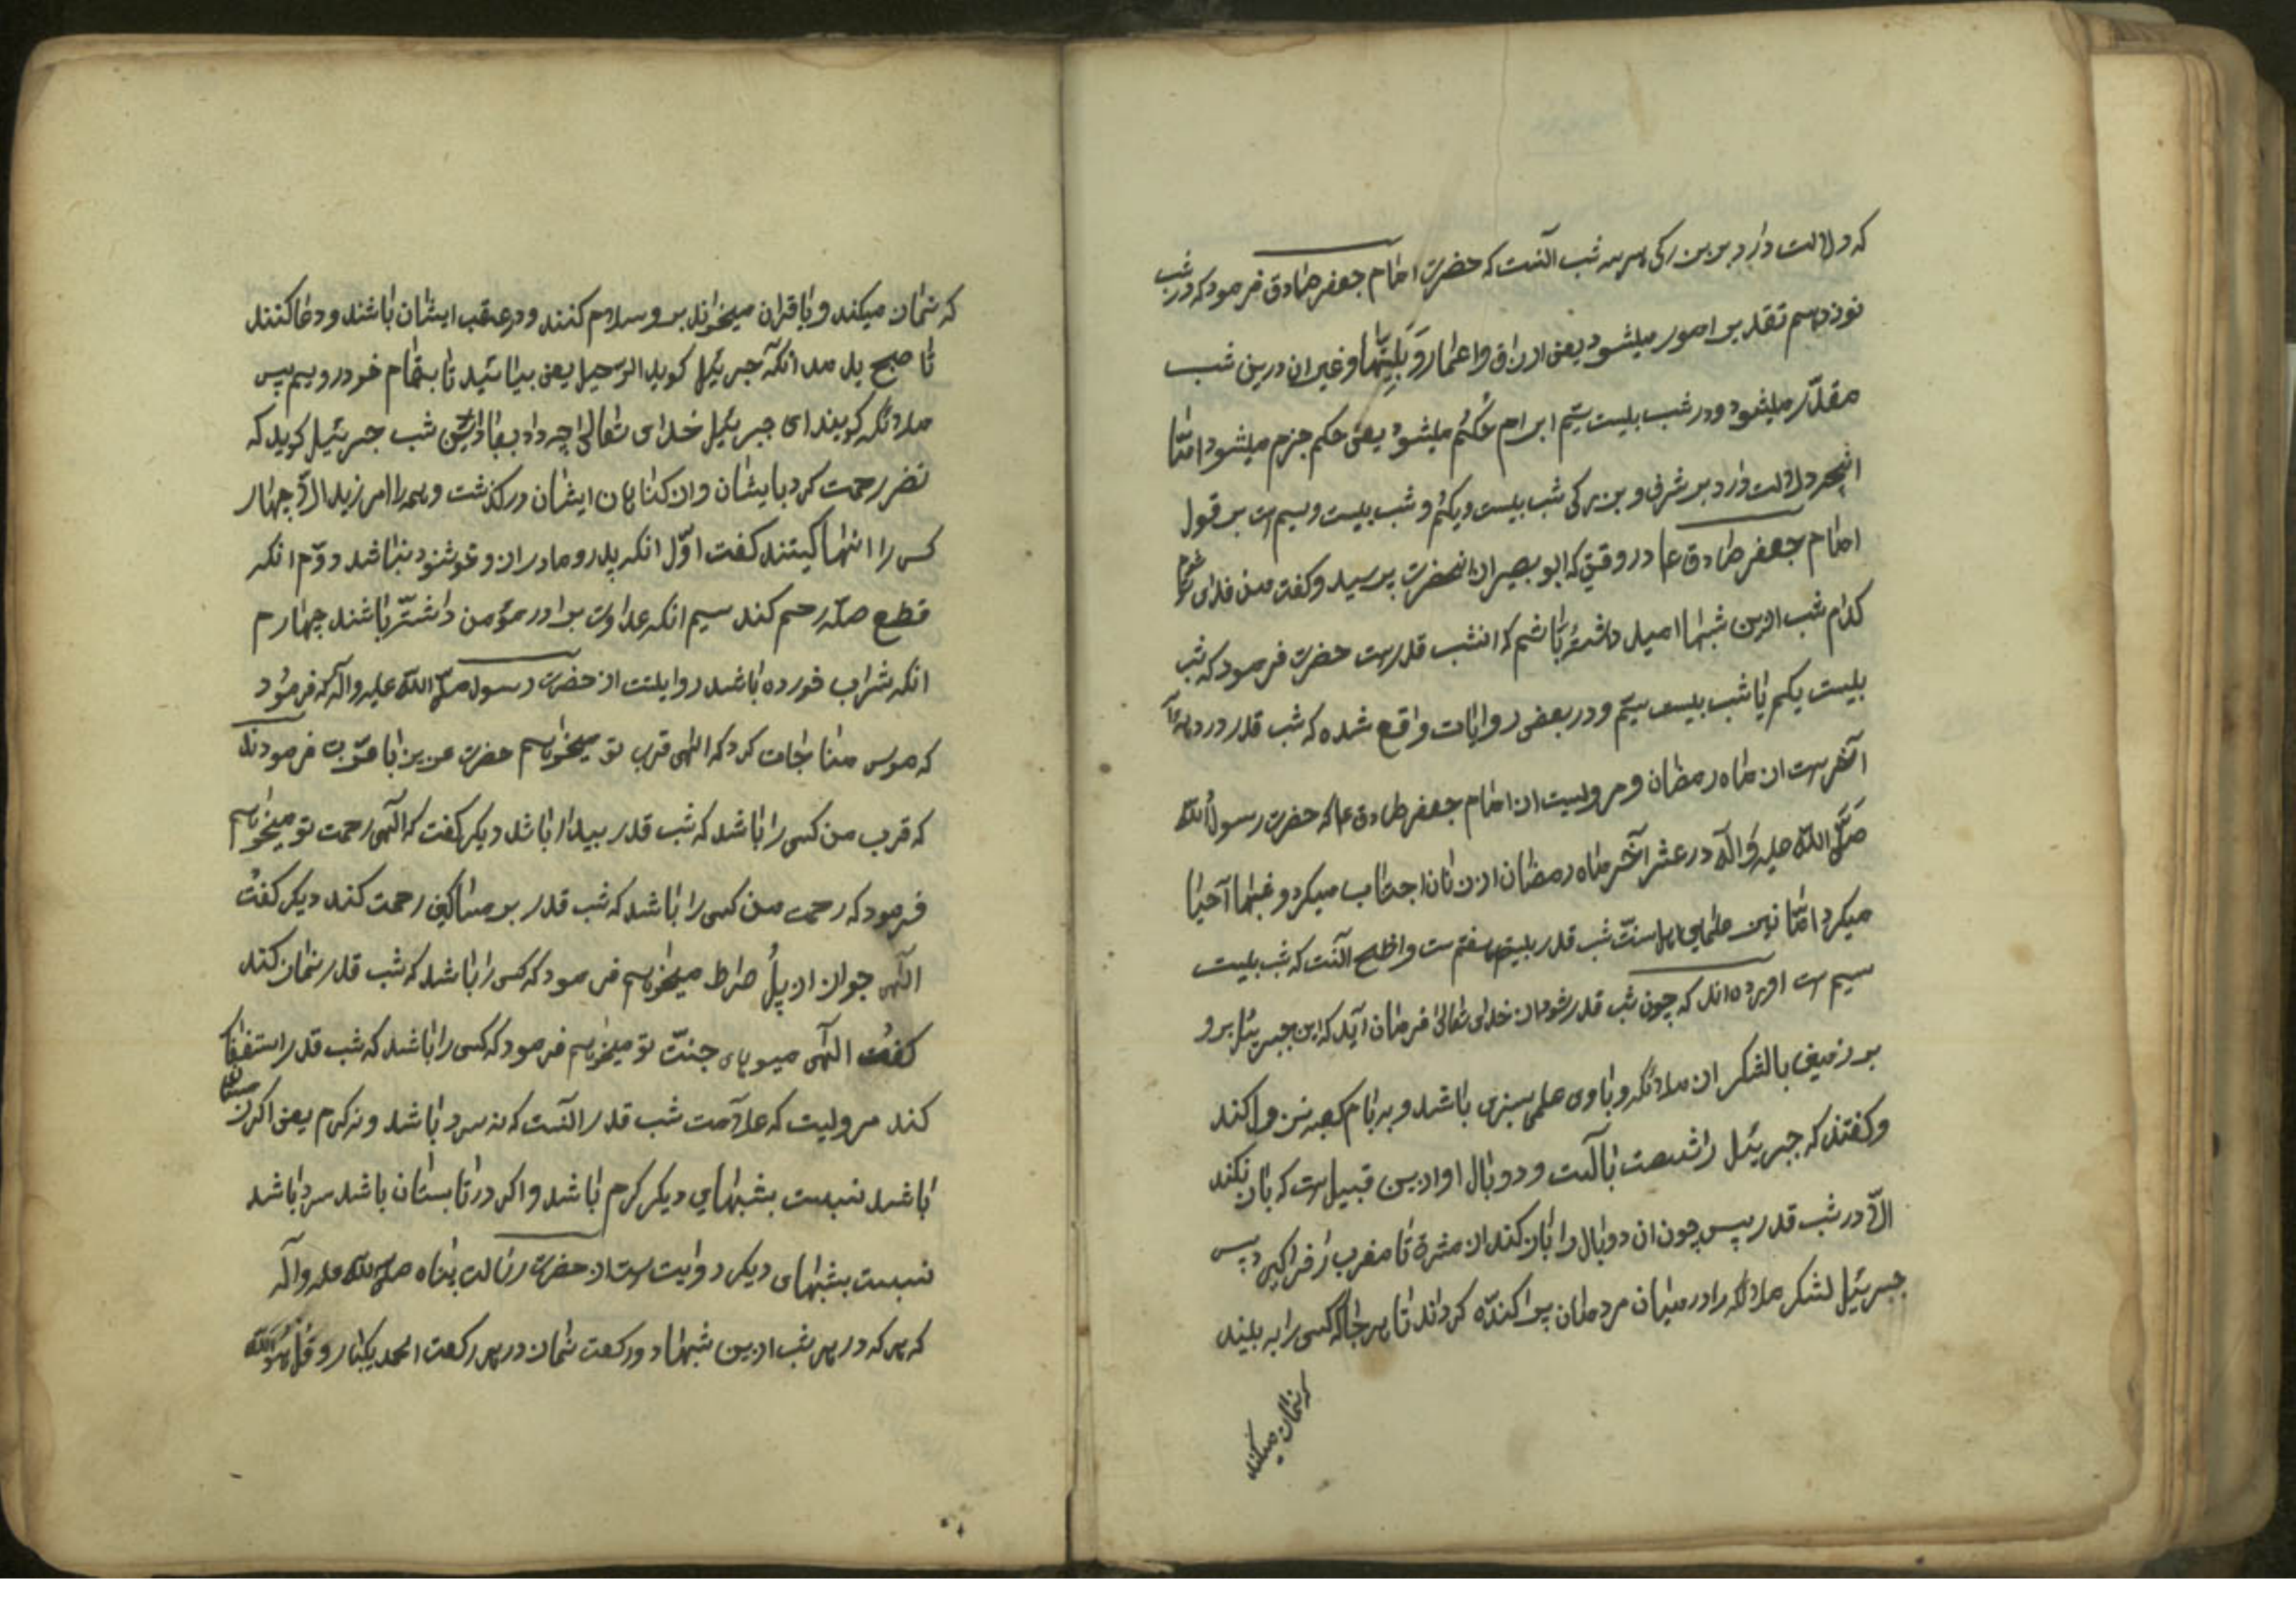 که دلالت دارد بر بزرکی هر سه شب آنست که حضرت امام جعفر صادق فرمود که در شب
نوزدهم تقدیر امور میشود یعنی ارزاق واعمار وَبَلِیّتها وغیر ان درین شب
مقدّر میشود ودر شب بیست سیّم ابرام حُکُم میشود یعنی حکم جزم میشود امّا
انچه دلالت دارد بر شرف و بزرکی شب بیست ویکُم و شب بیست وسیم است بر قول
امام جعفر صادق عا در وقتی که ابو بصیر از انحضرت پرسید وکفت من فدای شما شوم
کدام شب ازین شبها امید داشتهٔ باشم که انشب قدرست حضرت فرمود که شب
بیست یکم یا شب بیست سیّم ودر بعضی روایات واقع شده که شب قدر در دههٔ
آخرست از ماه رمضان و مرویست از امام جعفر صادق عا که حضرت رسولُ الله
صَلّی اللّه علیه وَآلَه در عشر آخر ماه رمضان از زنان اجتناب میکرد و شبها آحیا
میکرد امّا نزد علمای اهل سنّت شب قدر بیست هفتم ست واظهر آنست که شب بیست
سیم ست اورده اند که چون شب قدر شود از خدای تعالی فرمان آید که ای جبرئیل برو
بر زمین بالشکر از ملائکه وباوی علمی سبزی باشد و بر بام کعبه نزول کند
وکفتند که جبرئیل را ششصت بالست ودو بال او ازین قبیل ست که باز نکند
الّا در شب قدر پس چون ان دو بال را باز کند از مشرق تا مغرب را فرا کیرد پس
جبرئیل لشکر ملائکه را در میان مردمان پراکندّه کرداند تا هر جا که کسی را به بینند
که نماز میکند
که نماز میکند ویا قران میخواند بر وسلام کنند ودر عقب ایشان باشند ودعا کنند
تا صبح بدمد انکه جبرئیل کوید الرّحیل یعنی بیائید تا بمقام خود رویم پس
ملائکه کویند ای جبرئیل خدای تعالی چه داد بعباد این شب جبرئیل کوید که
نضر رحمت کرد بایشان واز کناهان ایشان درکذشت وهمه را امرزید الّا چهار
کس را انها کیتند کفت اوّل انکه پدر ومادر از وخوشنود نباشد دوّم انکه
قطع صلّه رحم کند سیم انکه عداوت برادر مؤمن داشتّه باشند چهارم
انکه شراب خورده باشد روایتت از حضرت رسول صلّی اللّه علیه وآله که فرمُود
که موسی مناجات کرد که الهی قرب تو میخواهم حضرت عزین باعزّت فرمودند
که قرب من کسی را باشد که شب قدر بیدار باشد دیکر کفت که الهی رحمت تو میخواهم
فرمود که رحمت من کسی را باشد که شب قدر بر مساکین رحمت کند دیکر کفت
الهی جواز از پلُ صراط میخواهم فرمود که کسی را باشد که شب قدر نماز کند
کفت الهی میوهای جنّت تو میخواهم فرمود که کسی را باشد که شب قدر استغفار
کند مرویت که علامت شب قدر آنست که نه سرد باشد ونه کرم یعنی اکر زمستان
باشد نسبت بشبهای دیکر کرم باشد واکر در تابستان باشد سرد باشد
نسبت بشبهای دیکر روایت ست از حضرت رسالت پناه صلّی اللّه علیه وآله
که هر که در هر شب ازین شبها دو رکعت نماز در هر رکعت الحمد یکبار و قُل هُوَ اللّه